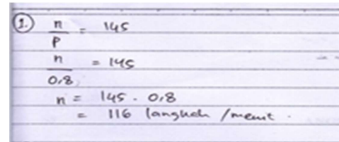 1. n/P = 145
n/0,8 = 145
n = 145 . 0,8
= 116 langkah / menit .